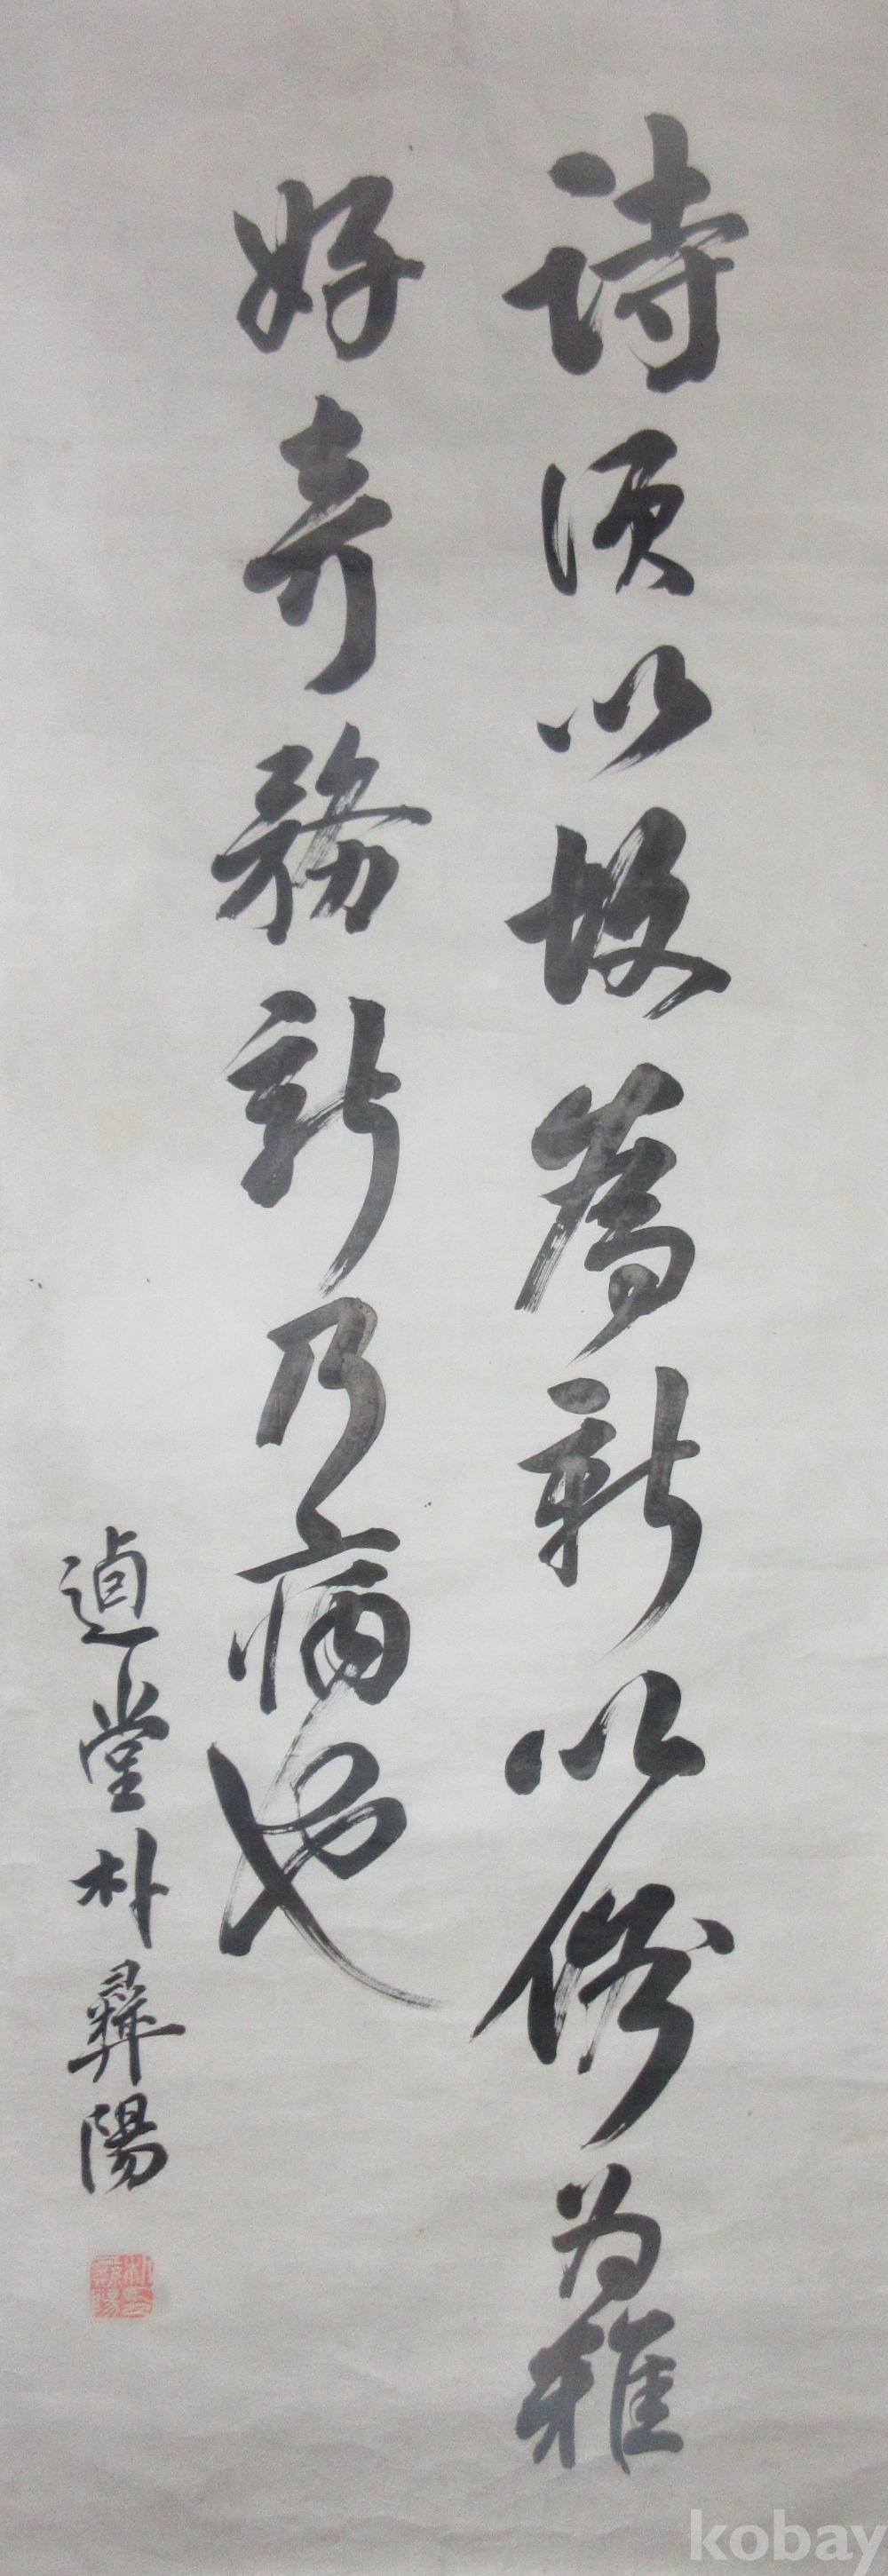 詩須以故為新以俗為雅
好奇務新乃病也
逌堂朴彝陽
kobay